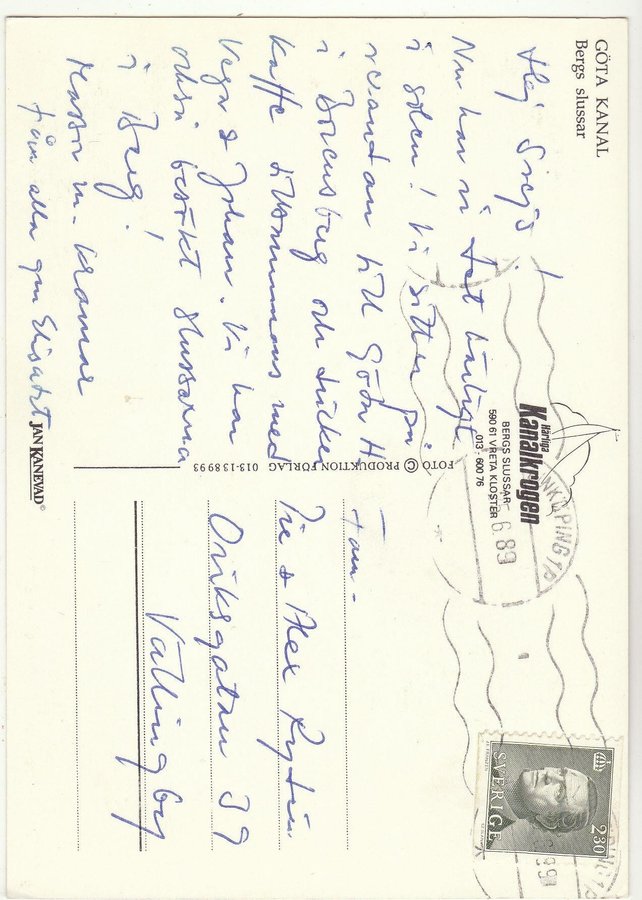 GÖTA KANAL
Bergs slussar
Hej Svejs!
Nu har vi det härligt
i solen! Vi sitter på
verandan till Göta H.
i Borensberg och dricker
kaffe tillsammans med
Vega & Johan. Vi har
också besökt slussarna
i Berg!
Massor m. kramar
från alla gm Elisabet
JAN KANEVAD©
FOTO © PRODUKTION FÖRLAG 013-138993
Härliga
Kanalkrogen
BERGS SLUSSAR
590 61 VRETA KLOSTER
013-600 76
LINKÖPING 1
6 89
SVERIGE
230
Fam.
Pie & Alex Rydin
Oriksgatan 39
Vällingby